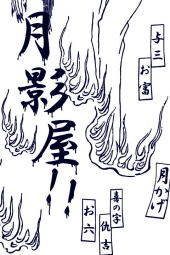 月影屋!!
与三
お富
月かげ
喜の字
仇吉
お六